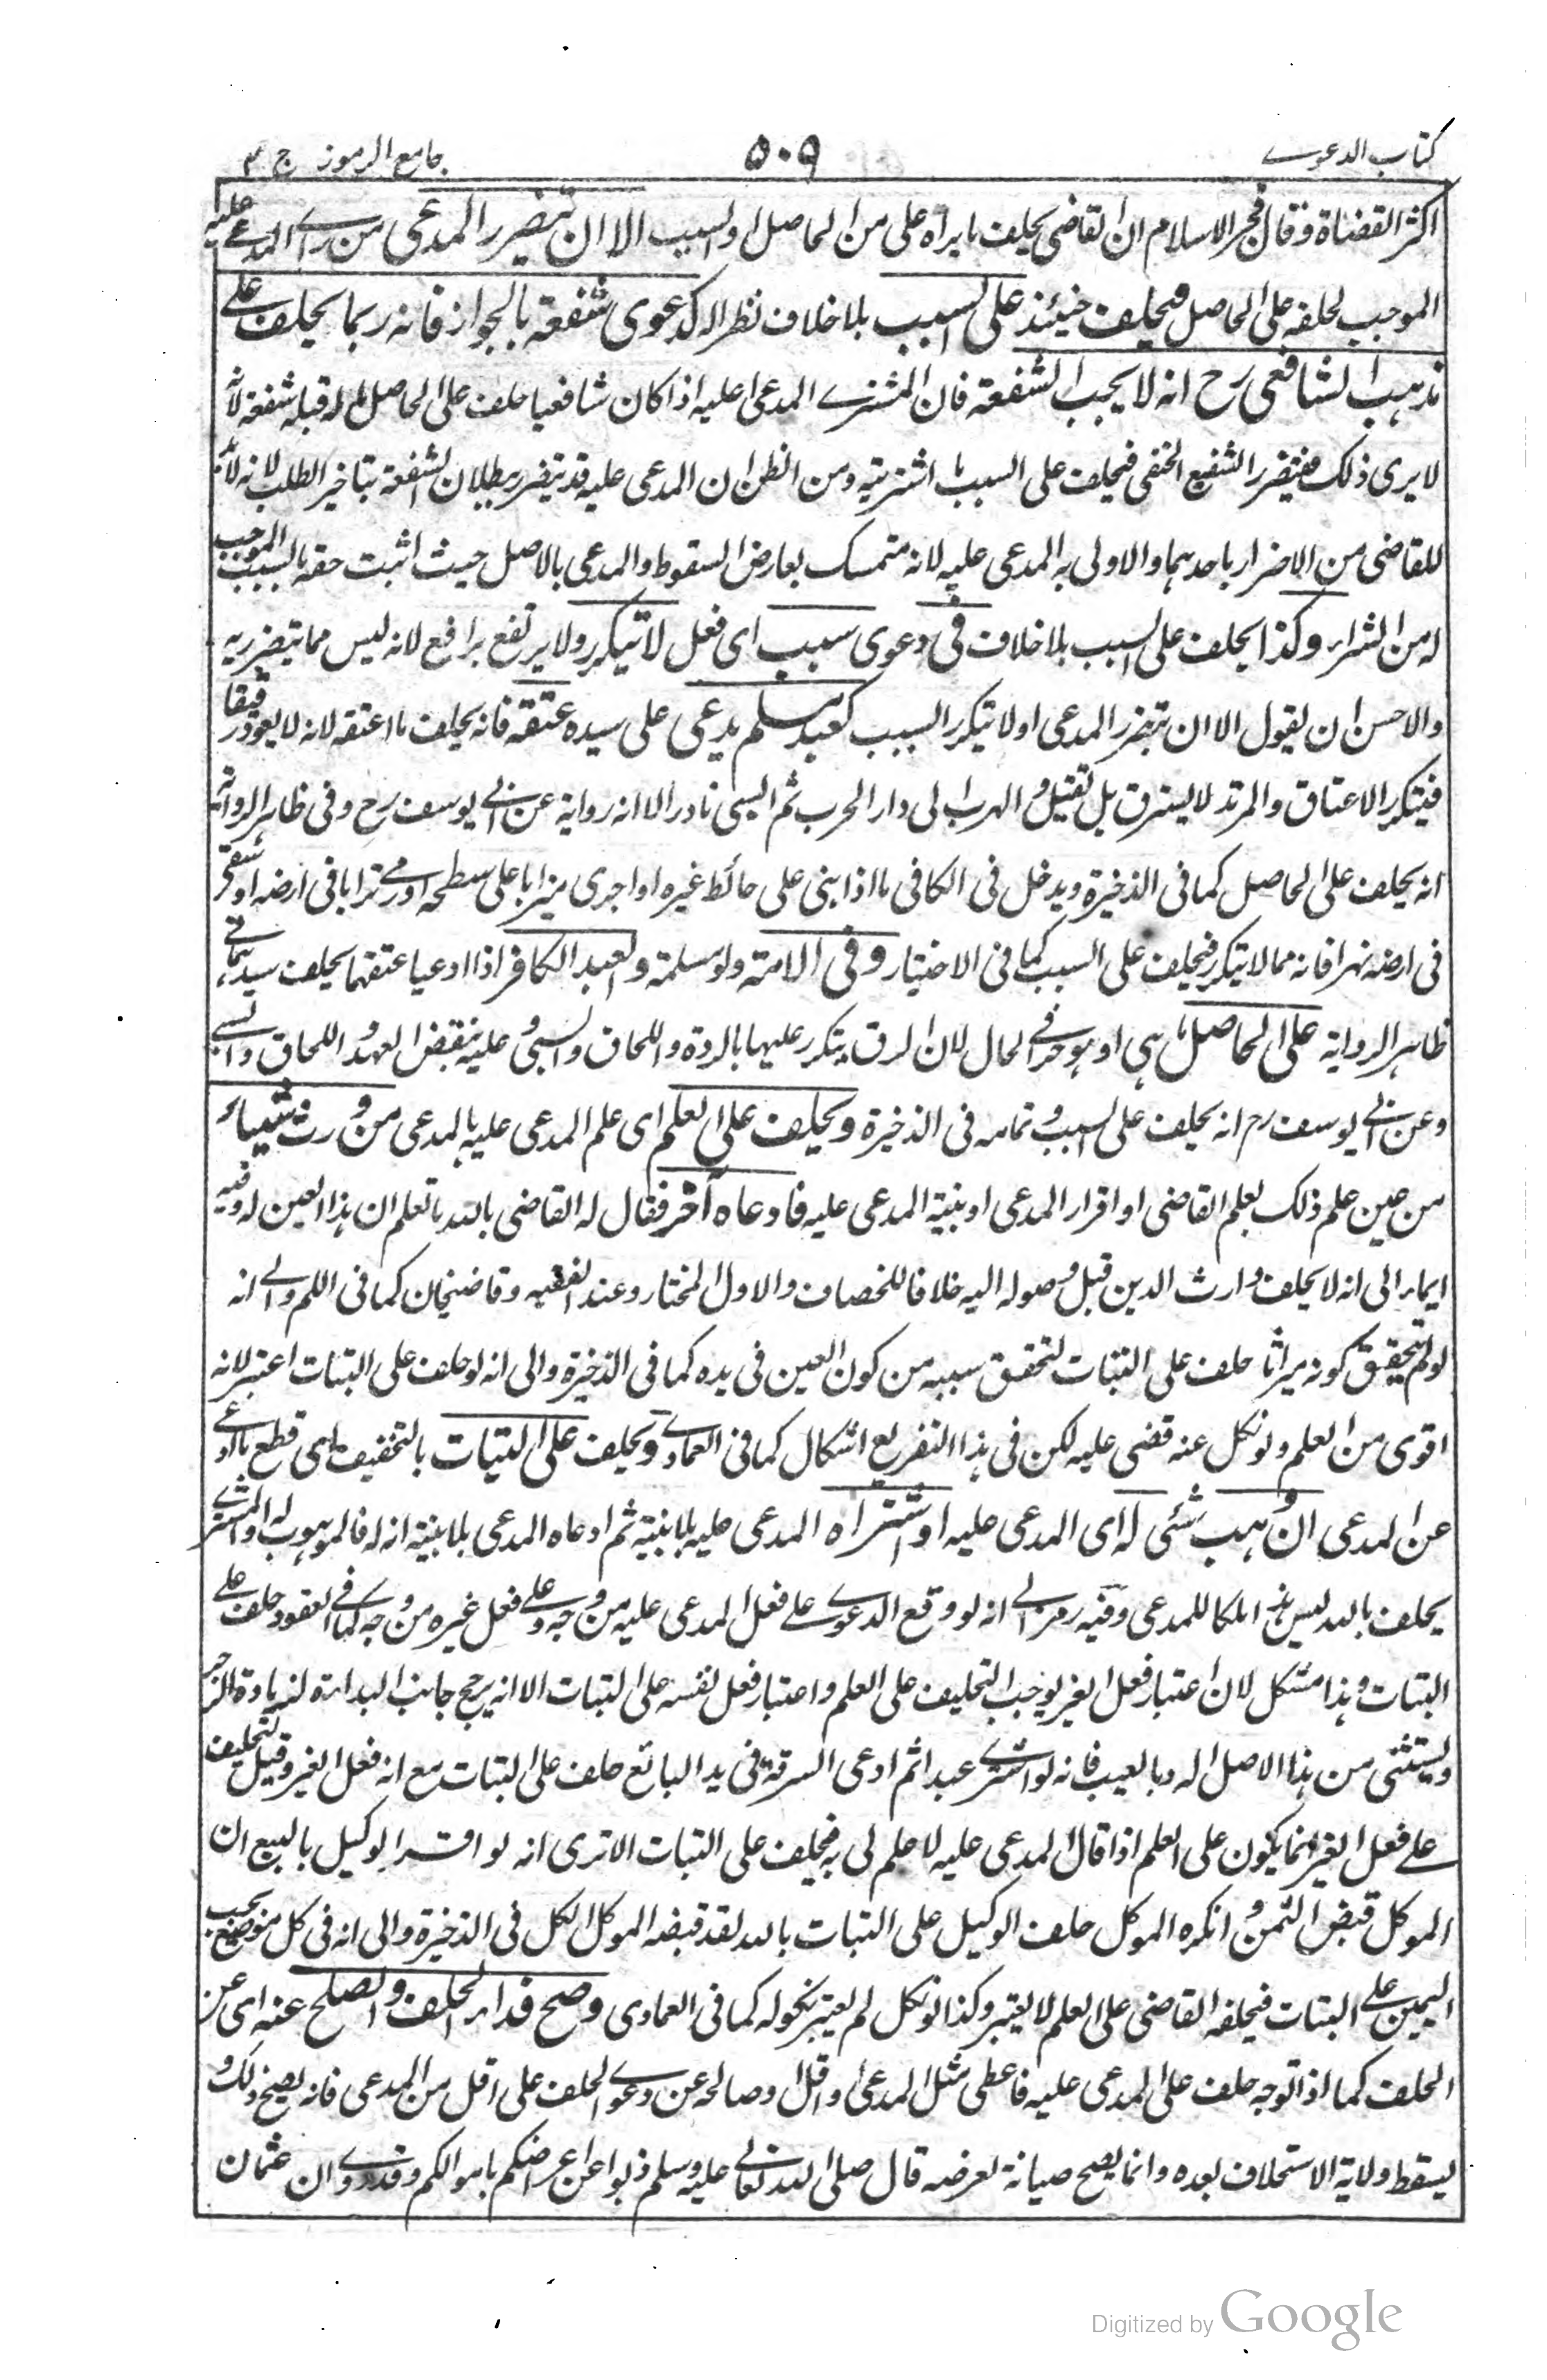 كتاب الدعوے
۵۰۹
جامع الرموز ج ۳
اكثر القضاة وقال فخر الاسلام ان القاضى يحلف ما يراه على من الحاصل او السبب الا ان يتضرر المدعى من راے المدعے عليه
الموجب لحلفه على الحاصل فيحلف حينئذ على السبب بلا خلاف نظرا له كدعوى شفعة بالجوار فانه ربما يحلف علے
مذهب الشافعى رح انه لا يجب الشفعة فان المشترے المدعى عليه اذا كان شافعيا حلف على الحاصل ما له قبله شفعة لانه
لا يرى ذلك فيتضرر الشفيع الحنفى فيحلف على السبب ما اشتريته ومن الظن ان المدعى عليه قد يتضرر ببطلان الشفعة بتاخير الطلب لانه لا بد
للقاضى من الاضرار باحدهما والاولى به المدعى عليه لانه متمسك بعارض السقوط والمدعى بالاصل حيث اثبت حقه بالسبب الموجب
له من الشراء وكذا يحلف على السبب بلا خلاف فى دعوى سبب اى فعل لا يتكرر ولا يرتفع برافع لانه ليس مما يتضرر به
والاحسن ان يقول الا ان يتضرر المدعى او لا يتكرر السبب كعبد مسلم يدعى على سيده عتقه فانه يحلف ما اعتقه لانه لا يعود رقيقا
فيتكرر الاعتاق والمرتد لا يسترق بل يقتل والهرب الى دار الحرب ثم السبى نادر الا انه رواية عن ابى يوسف رح وفى ظاهر الرواية
انه يحلف على الحاصل كما فى الذخيرة ويدخل فى الكافى ما اذا بنى على حائط غيره او اجرى ميزابا على سطحه او رمے ترابا فى ارضه او شق
فى ارضه نهرا فانه مما لا يتكرر فيحلف على السبب كما فى الاختيار وفى الامة ولو مسلمة والعبد الكافر اذا ادعيا عتقهما يحلف سيدهما فے
ظاهر الرواية على الحاصل ما هى او هو حر فے الحال لان الرق يتكرر عليها بالردة واللحاق والسبى وعليه بنقض العهد واللحاق والسبى
وعن ابى يوسف رح انه يحلف على السبب وتمامه فى الذخيرة ويحلف على العلم اى علم المدعى عليه بالمدعى من ورث شيئا
من عين علم ذلك بعلم القاضى او اقرار المدعى او بنية المدعى عليه فادعاه آخر فقال له القاضى بالله ما تعلم ان هذا العين له وفيه
ايماء الى انه لا يحلف وارث الدين قبل وصوله اليه خلافا للخصاف والاول المختار وعند الفقيه وقاضيخان كما فى اللم والے انه
لو لم يتحقق كونه ميراثا حلف على البتات لتحقق سببه من كون العين فى يده كما فى الذخيرة والى انه لو حلف على البتات اعتبر لانه
اقوى من العلم ولو نكل عنه قضى عليه لكن فى هذا التفريع اشكال كما فى العمادے ويحلف على البتات بالتخفيف اى قطع ما ادعے
عن المدعى ان وهب شئى له اى المدعى عليه او اشتراه المدعى عليه بلا بنية ثم ادعاه المدعى بلا بنية انه له فالموهوب له والمشترے
يحلف بالله ليس هذا ملكا للمدعى وفيه رمز الے انه لو وقع الدعوے علے فعل المدعى عليه من وجه وعلے فعل غيره من وجه كما فے العقود حلف علے
البتات وهذا مشكل لان اعتبار فعل الغير يوجب التحليف على العلم واعتبار فعل نفسه على البتات الا انه يرجح جانب البداءة لزيادة الزجر
ويستثنى من هذا الاصل الرد بالعيب فانه لو اشترے عبدا ثم ادعى السرقة فى يد البائع حلف على البتات مع انه فعل الغير وقيل التحليف
علے فعل الغير انما يكون على العلم اذا قال المدعى عليه لا علم لى به فيحلف على البتات الا ترى انه لو اقر الوكيل بالبيع ان
الموكل قبض الثمن وانكره الموكل حلف الوكيل على البتات بالله لقد قبضه الموكل الكل فى الذخيرة والى انه فى كل موضع يجب
اليمين علے البتات فيحلفه القاضى على العلم لا يعتبر وكذا لو نكل لم يعتبر نكوله كما فى العمادى وصح فداء الحلف والصلح عنه اى عن
الحلف كما اذا توجه حلف على المدعى عليه فاعطى مثل المدعى او اقل او صالحه عن دعوے الحلف على اقل من المدعى فانه يصح ذلك و
يسقط ولاية الاستحلاف بعده وانما يصح صيانة لعرضه قال صلى الله تعالے عليه وسلم ذبوا عن اعراضكم باموالكم وقد روے ان عثمان
Digitized by Google